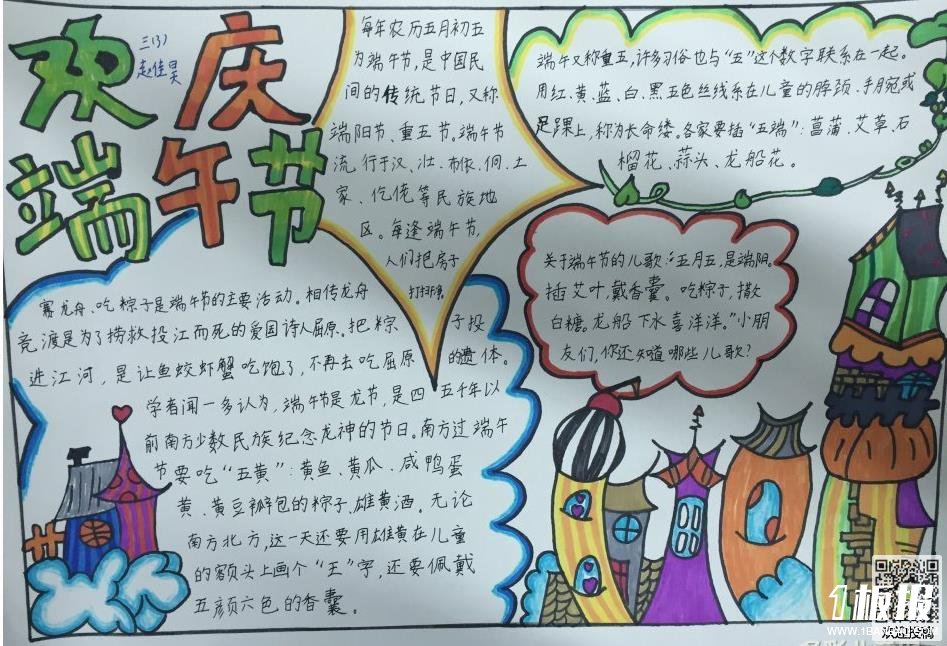 欢庆
端午节
三(3)
赵佳昊
每年农历五月初五
为端午节,是中国民
间的传统节日,又称
端阳节、重五节。端午节
流行于汉、壮、布依、侗、土
家、仡佬等民族地
区。每逢端午节,
人们把房子
打扫干净。
端午又称重五,许多习俗也与“五”这个数字联系在一起。
用红、黄、蓝、白、黑五色丝线系在儿童的脖颈、手腕或
足踝上,称为长命缕。各家要插“五端”:菖蒲、艾草、石
榴花、蒜头、龙船花。
关于端午节的儿歌:“五月五,是端阳。
插艾叶,戴香囊。吃粽子,撒
白糖。龙船下水喜洋洋。”小朋
友们,你还知道哪些儿歌?
赛龙舟、吃粽子是端午节的主要活动。相传龙舟
竞渡是为了捞救投江而死的爱国诗人屈原。把粽子投
进江河,是让鱼蛟虾蟹吃饱了,不再去吃屈原的遗体。
学者闻一多认为,端午节是龙节,是四五千年以
前南方少数民族纪念龙神的节日。南方过端午
节要吃“五黄”:黄鱼、黄瓜、咸鸭蛋
黄、黄豆瓣包的粽子、雄黄酒。无论
南方北方,这一天还要用雄黄在儿童
的额头上画个“王”字,还要佩戴
五颜六色的香囊。
1板报
WWW.1BANBAO.COM
欢迎投稿